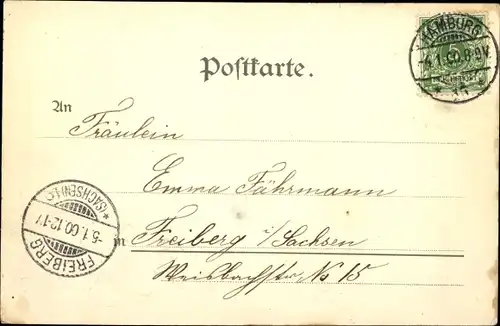 HAMBURG
4.1.00.8-9V
* 1f *
Postkarte.
An
Fräulein
Emma Fährmann
in Freiberg i/Sachsen
Weisbachstr. No 15
*(SACHSEN)*
-5.1.00.12-1V
FREIBERG